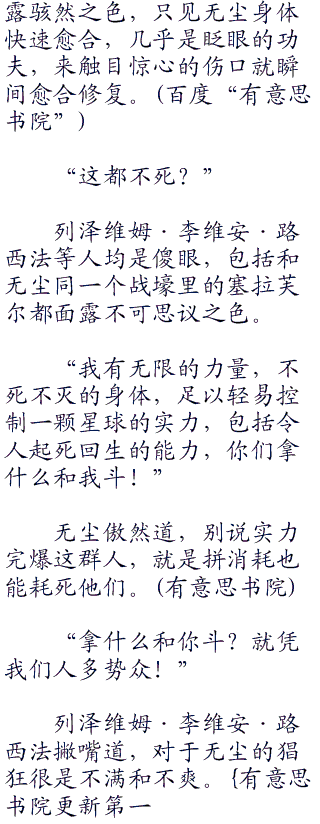 露骇然之色，只见无尘身体
快速愈合，几乎是眨眼的功
夫，来触目惊心的伤口就瞬
间愈合修复。(百度“有意思
书院”)
“这都不死？”
列泽维姆·李维安·路
西法等人均是傻眼，包括和
无尘同一个战壕里的塞拉芙
尔都面露不可思议之色。
“我有无限的力量，不
死不灭的身体，足以轻易控
制一颗星球的实力，包括令
人起死回生的能力，你们拿
什么和我斗！”
无尘傲然道，别说实力
完爆这群人，就是拼消耗也
能耗死他们。(有意思书院)
“拿什么和你斗？就凭
我们人多势众！”
列泽维姆·李维安·路
西法撇嘴道，对于无尘的猖
狂很是不满和不爽。{有意思
书院更新第一